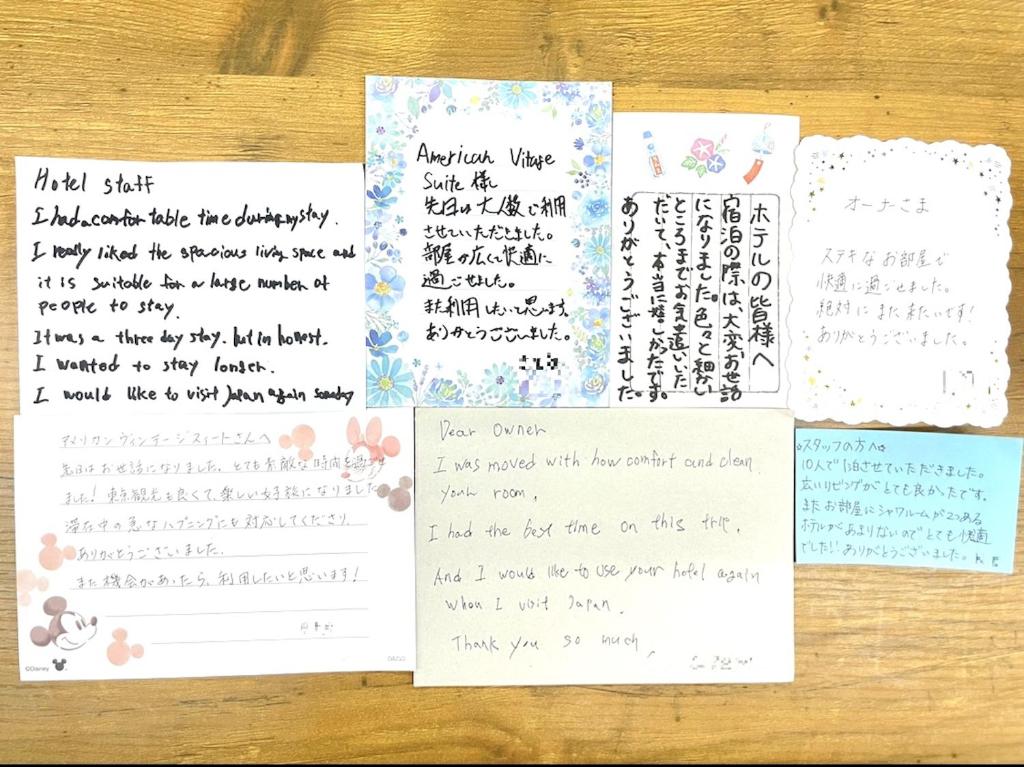 Hotel staff
I had a comfortable time during my stay.
I really liked the spacious living space and
it is suitable for a large number of
people to stay.
It was a three day stay. but in honest.
I wanted to stay longer.
I would like to visit Japan again someday
American Vitage
Suite 様
先日は大人数で利用
させていただきました。
部屋が広くて快適に
過ごせました。
また利用したいと思います。
ありがとうございました。
ホテルの皆様へ
宿泊の際は、大変お世話
になりました。色々と細かい
ところまでお気遣いいた
だいて、本当に嬉しかったです。
ありがとうございました。
オーナーさま
ステキなお部屋で
快適に過ごせました。
絶対にまた来たいです!
ありがとうございました。
アメリカンヴィンテージスイートさんへ
先日はお世話になりました。とても素敵な時間を過ごせ
ました!東京観光も良くて、楽しい女子旅になりました
滞在中の急なハプニングにも対応してくださり、
ありがとうございました。
また機会があったら、利用したいと思います!
©Disney
Dear Owner
I was moved with how comfort and clean
your room.
I had the best time on this trip.
And I would like to use your hotel again
when I visit Japan.
Thank you so much,
☆スタッフの方へ☆
10人で1泊させていただきました。
広いリビングがとても良かったです。
またお部屋にシャワルームが2つある
ホテルがあまりないのでとても快適
でした!!ありがとうございました。